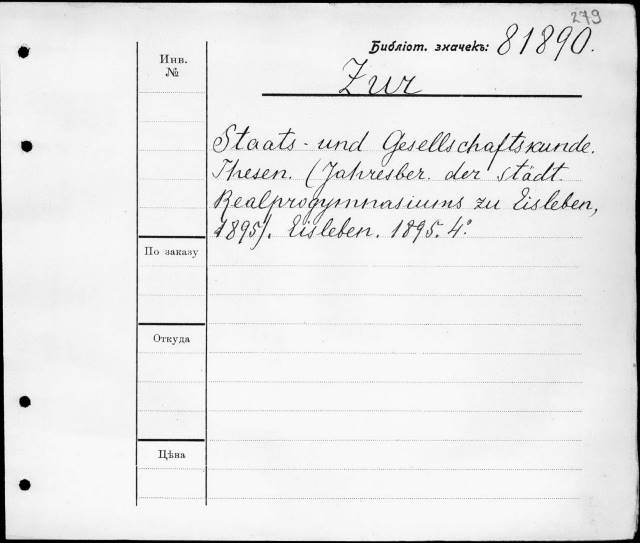 279
Библіот. значекъ: 81890.
Инв.
№
Zur
Staats- und Gesellschaftskunde.
Thesen. (Jahresber. der städt.
Realprogymnasiums zu Eisleben,
1895). Eisleben. 1895. 4°.
По заказу
Откуда
Цѣна